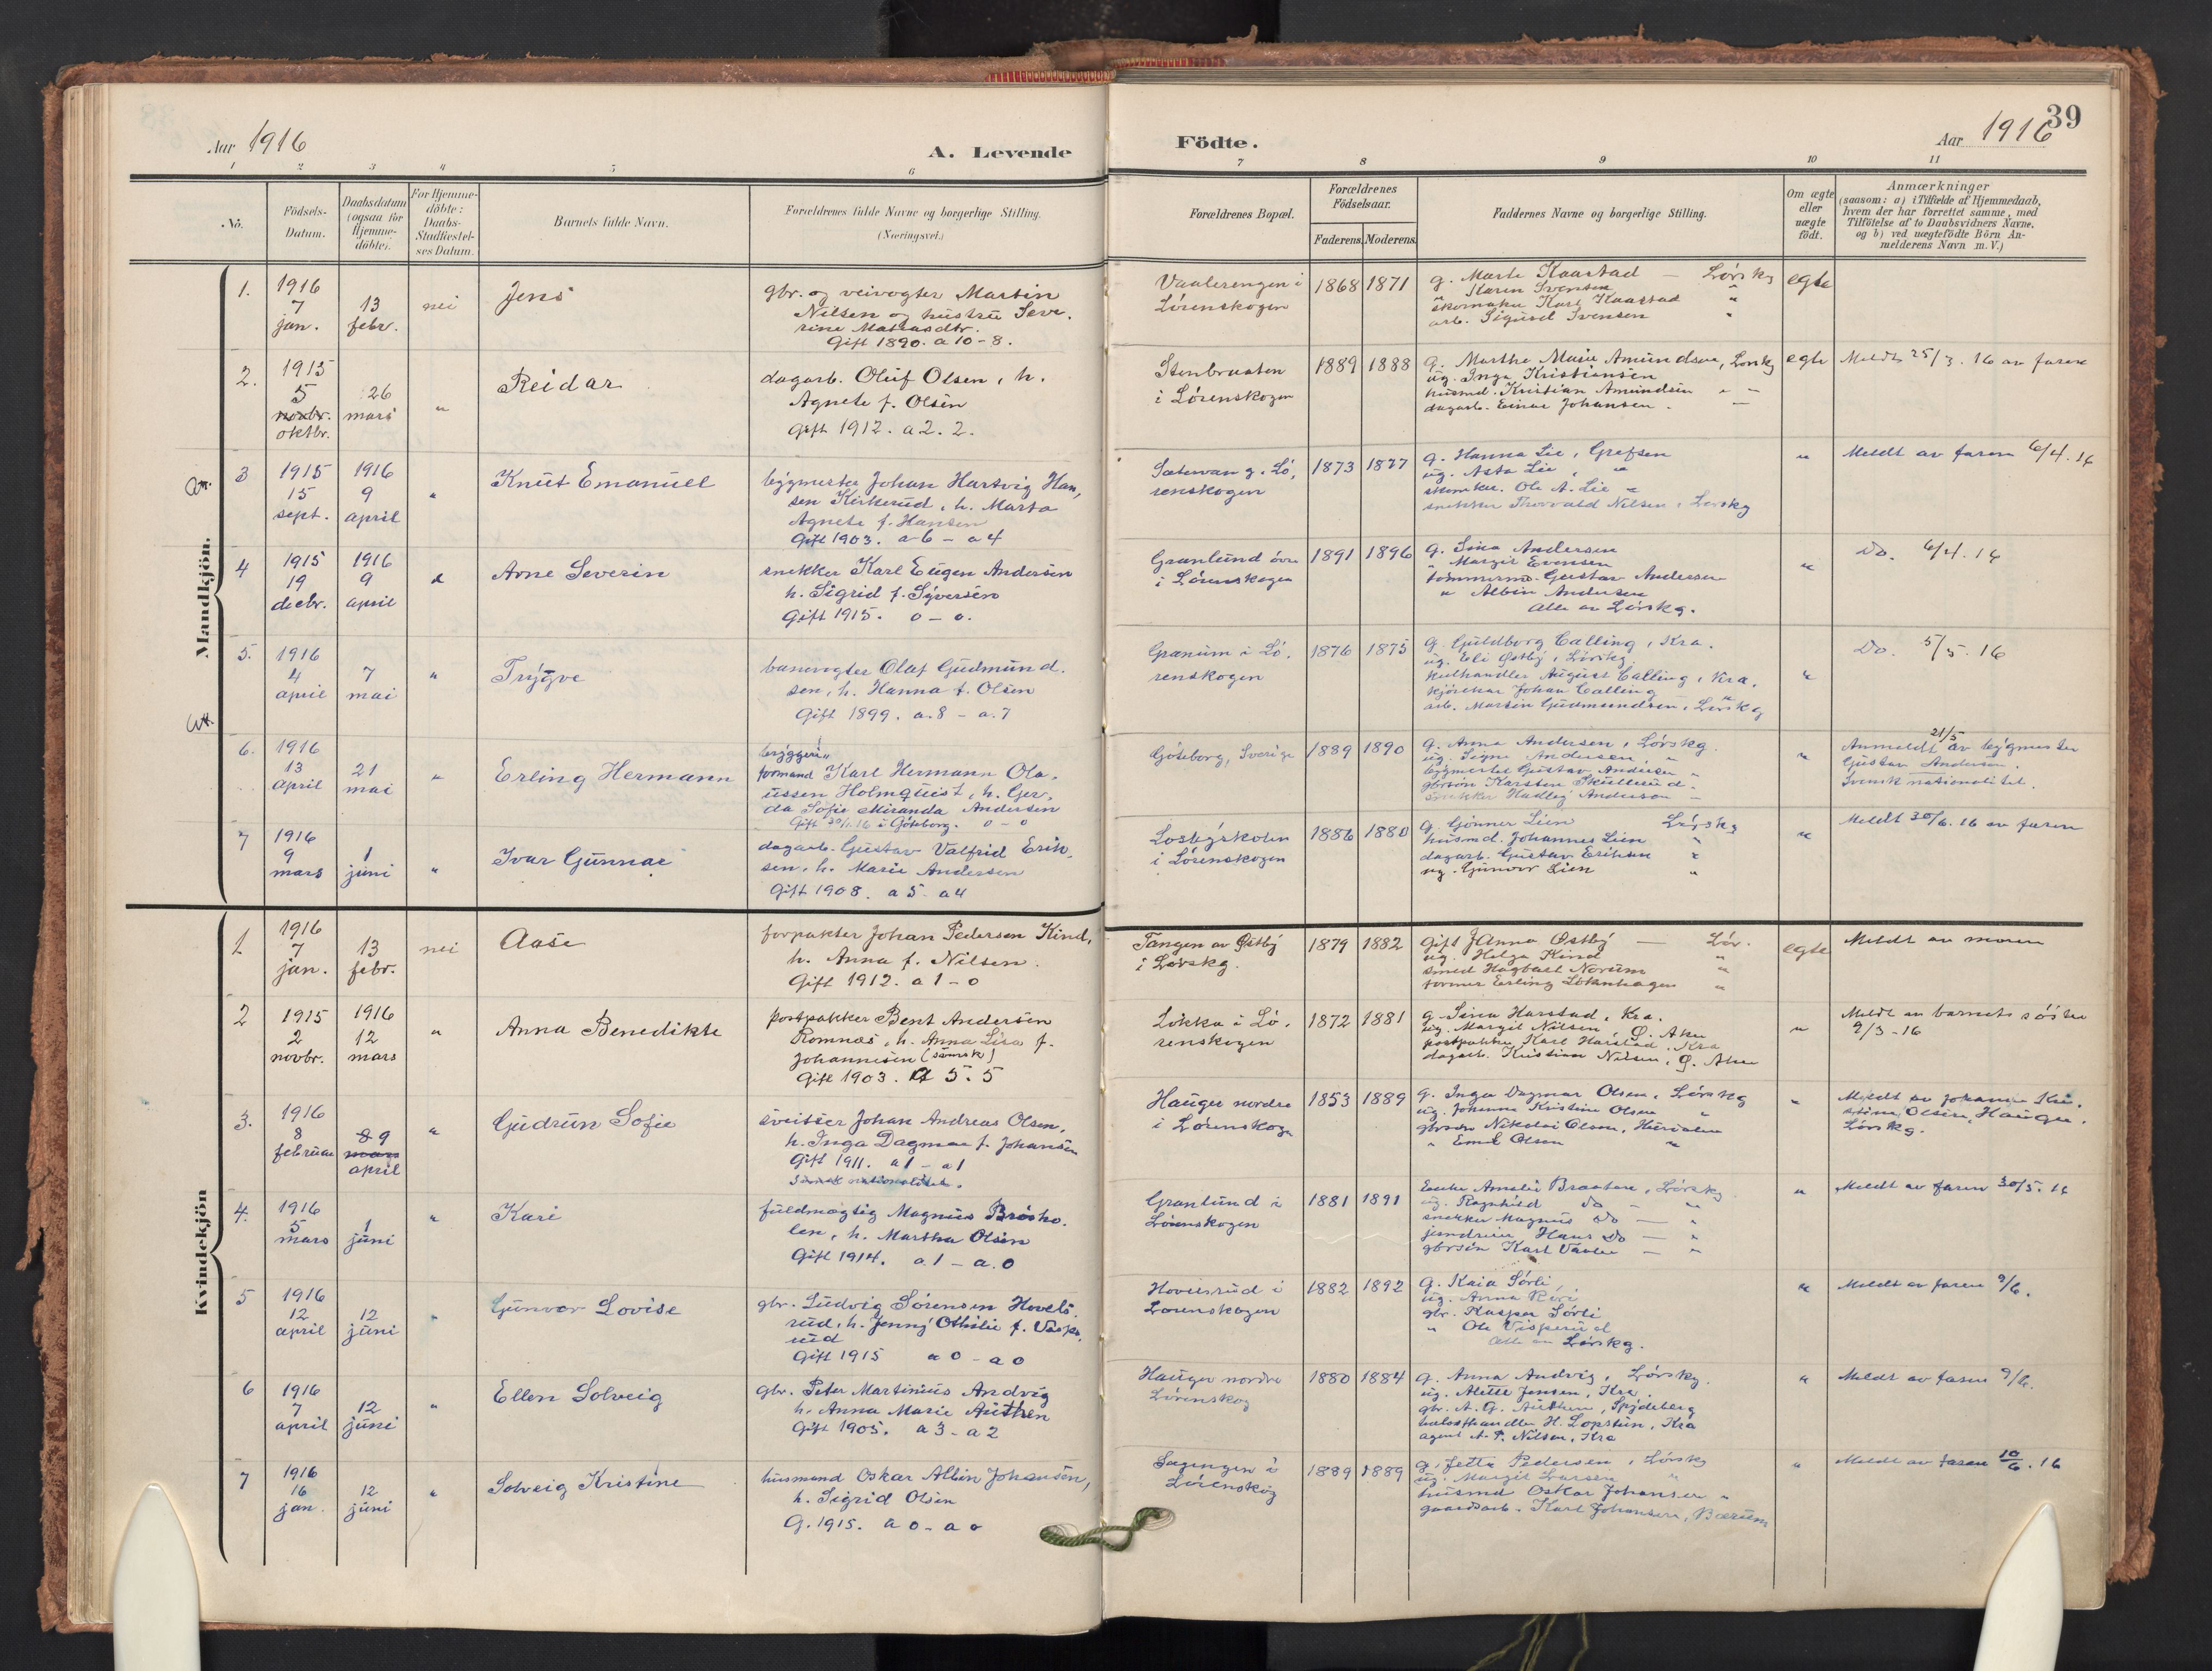 39
Aar 1916
A. Levende
Födte.
Aar 1916
1 2 3 4 5 6 7 8 9 10 11
No.
Födsels-
Datum.
Daabsdatum
(ogsaa for
Hjemme-
döbte).
For Hjemme-
döbte:
Daabs-
Stadfæstel-
ses Datum.
Barnets fulde Navn.
Forældrenes fulde Navne og borgerlige Stilling.
(Næringsvei.)
Forældrenes Bopæl.
Forældrenes
Födselsaar.
Faderens. Moderens.
Faddernes Navne og borgerlige Stilling.
Om ægte
eller
uægte
födt.
Anmærkninger
(saasom: a) i Tilfælde af Hjemmedaab,
hvem der har forrettet samme, med
Tilföielse af to Daabsvidners Navne,
og b) ved uægtefödte Börn An-
melderens Navn m. V.)
Mandkjön.
1.
1916
7
jan.
13
febr.
nei
Jens
gbr. og veivogter Martin
Nilsen og hustru Seve-
rine Mathisdtr.
Gift 1890. a 10 - 8.
Vaalerengen i
Lörenskogen
1868 1871
g. Marte Kaarstad — Lörskg
" Karen Svensen "
skomaker Karl Kaarstad "
arb. Sigurd Svensen "
egte
2.
1915
5
novbr.
oktbr.
26
mars
"
Reidar
dagarb. Oluf Olsen, h.
Agnete f. Olsen
Gift 1912. a 2. 2.
Stenbraaten
i Lörenskogen
1889 1888
g. Marthe Marie Amundsen, Lörskg
ug. Inga Kristiansen
husmd. Kristian Amundsen " —
dagarb. Einar Johansen. —
egte
Meldt 25/3. 16 av faren
3
1915
15
sept.
1916
9
april
"
Knut Emanuel
bygmester Johan Hartvig Han-
sen Kirkerud, h. Marta
Agnete f. Hansen
Gift 1903. a 6 - a 4
Sætervang. Lö-
renskogen
1873 1877
g. Hanna Lie, Grefsen
ug. Asta Lie, "
skomaker. Ole A. Lie "
snekker Thorvald Nilsen, Lörskg
"
Meldt av faren 6/4. 16
4
1915
19
decbr.
1916
9
april
"
Arne Severin
snekker Karl Eugen Andersen
h. Sigrid f. Syversen
Gift 1915. o - o.
Granlund övre
i Lörenskogen
1891 1896
g. Lina Andersen
" Margit Evensen
tömmermd. Gustav Andersen
" Albin Andersen
Alle av Lörskg.
"
Do. 6/4. 16
5.
1916
4
april
7
mai
"
Trygve
banevogter Olaf Gudmund-
sen, h. Hanna f. Olsen
Gift 1899. a. 8 - a. 7
Granum i Lö-
renskogen
1876 1875
g. Guldborg Calling, Kra.
ug. Eli Östby, Lörskg
kulhandler August Calling, Kra.
kjörekar Johan Calling "
arb. Martin Gudmundsen, Lörskg
"
Do. 5/5. 16
6.
1916
13
april
21
mai
"
Erling Hermann
bryggeri-
formand Karl Hermann Ola-
ussen Holmquist, h. Ger-
da Sofie Miranda Andersen
Gift 30/1. 16 i Göteborg. o - o
Göteborg, Sverige
1889 1890
g. Anna Andersen, Lörskg.
ug. Signe Andersen "
bygmester Gustav Andersen "
gbrsön Karsten Skullerud "
snekker Hadley Anderson —
"
21/5
Anmeldt av bygmester
Gustav Andersen.
Svensk nationalitet.
7
1916
9
mars
1
juni
"
Ivar Gunnar
dagarb. Gustav Valfrid Erik-
sen, h. Marie Andersen
Gift 1908. a 5 - a 4
Losbyskolen
i Lörenskogen
1886 1880
g. Gönner Lien Lörskg
husmd. Johannes Lien "
dagarb. Gustav Eriksen "
ug. Gunvor Lien "
"
Meldt 30/6. 16 av faren
Kvindekjön
1
1916
7
jan.
13
febr.
nei
Aase
forpakter Johan Pedersen Kind,
h. Anna f. Nilsen.
Gift 1912. a 1 - o
Tangen av Östby
i Lörskg.
1879 1882
Gift Janna Østby — Lör.
ug. Helga Kind "
smed Hagbart Norum "
former Erling Lökenhagen "
egte
Meldt av moren
2
1915
2
novbr.
1916
12
mars
"
Anna Benedikte
postpakker Bent Andersen
Romnæs, h. Anna Lisa f.
Johannesen (svensk)
Gift 1903. a 5. 5
Lökka i Lö-
renskogen
1872 1881
g. Lina Harstad, Kra.
ug. Margit Nilsen, Ø. Aker
postpakker Karl Harstad, Kra
dagarb. Kristian Nilsen, Ø. Aker
"
Meldt av barnets söster
9/3 - 16
3.
1916
8
februar
8 9
mars
april
"
Gudrun Sofie
sveitser Johan Andreas Olsen,
h. Inga Dagmar f. Johansen
Gift 1911. a 1 - a 1
Svensk nationalitet.
Hauger nordre
i Lörenskogen
1853 1889
g. Inga Dagmar Olsen, Lörskg
ug. Johanna Kristine Olsen "
gbrsön Nikolai Olsen, Hurdalen
" Emil Olsen "
"
Meldt av Johanna Kri-
stine Olsen, Hauger,
Lörskg.
4.
1916
5
mars
1
juni
"
Kari
fuldmægtig Magnus Bråtho-
len, h. Martha Olsen
Gift 1914. a. 1 - a. 0
Granlund i
Lörenskogen
1881 1891
Enke Amalie Braaten, Lörskg
ug. Ragnhild Do — "
snekker Magnus Do — "
Hans Do — "
gbrsön Karl — "
"
Meldt av faren 30/5. 16
5
1916
12
april
12
juni
"
Gunvor Lovise
gbr. Ludvig Sörensen Hovels-
rud, h. Jenny Othilie f. Visper-
ud
Gift 1915 a 0 - a 0
Hovelsrud i
Lörenskogen
1882 1892
g. Kaia Sörli,
ug. Anna
gbr. Kasper Sörli
" Ole Visperud
Alle av Lörskg.
"
Meldt av faren 9/6.
6
1916
7
april
12
juni
"
Ellen Solveig
gbr. Peter Martinius Andvig
h. Anna Marie Authen
Gift 1905. a 3 - a 2
Hauger nordre
Lörenskog
1880 1884
g. Anna Andvig, Lörskg.
ug. Alette Jensen, Kra.
gbr. A. G. Authen, Spydeberg
H. Lopstun, Kra
agent A. P. Nilsen, Kra
"
Meldt av faren 9/6.
7
1916
16
jan.
12
juni
"
Solveig Kristine
husmand Oskar Albin Johansen,
h. Sigrid Olsen
G. 1915. a 0 - a 0
Sagengen i
Lörenskog
1889 1889
g. Jette Pedersen, Lörskg
ug. Margit Larsen "
husmd Oskar Johansen "
gaardsarb. Karl Johansen, Bærum
"
Meldt av faren 10/6. 16